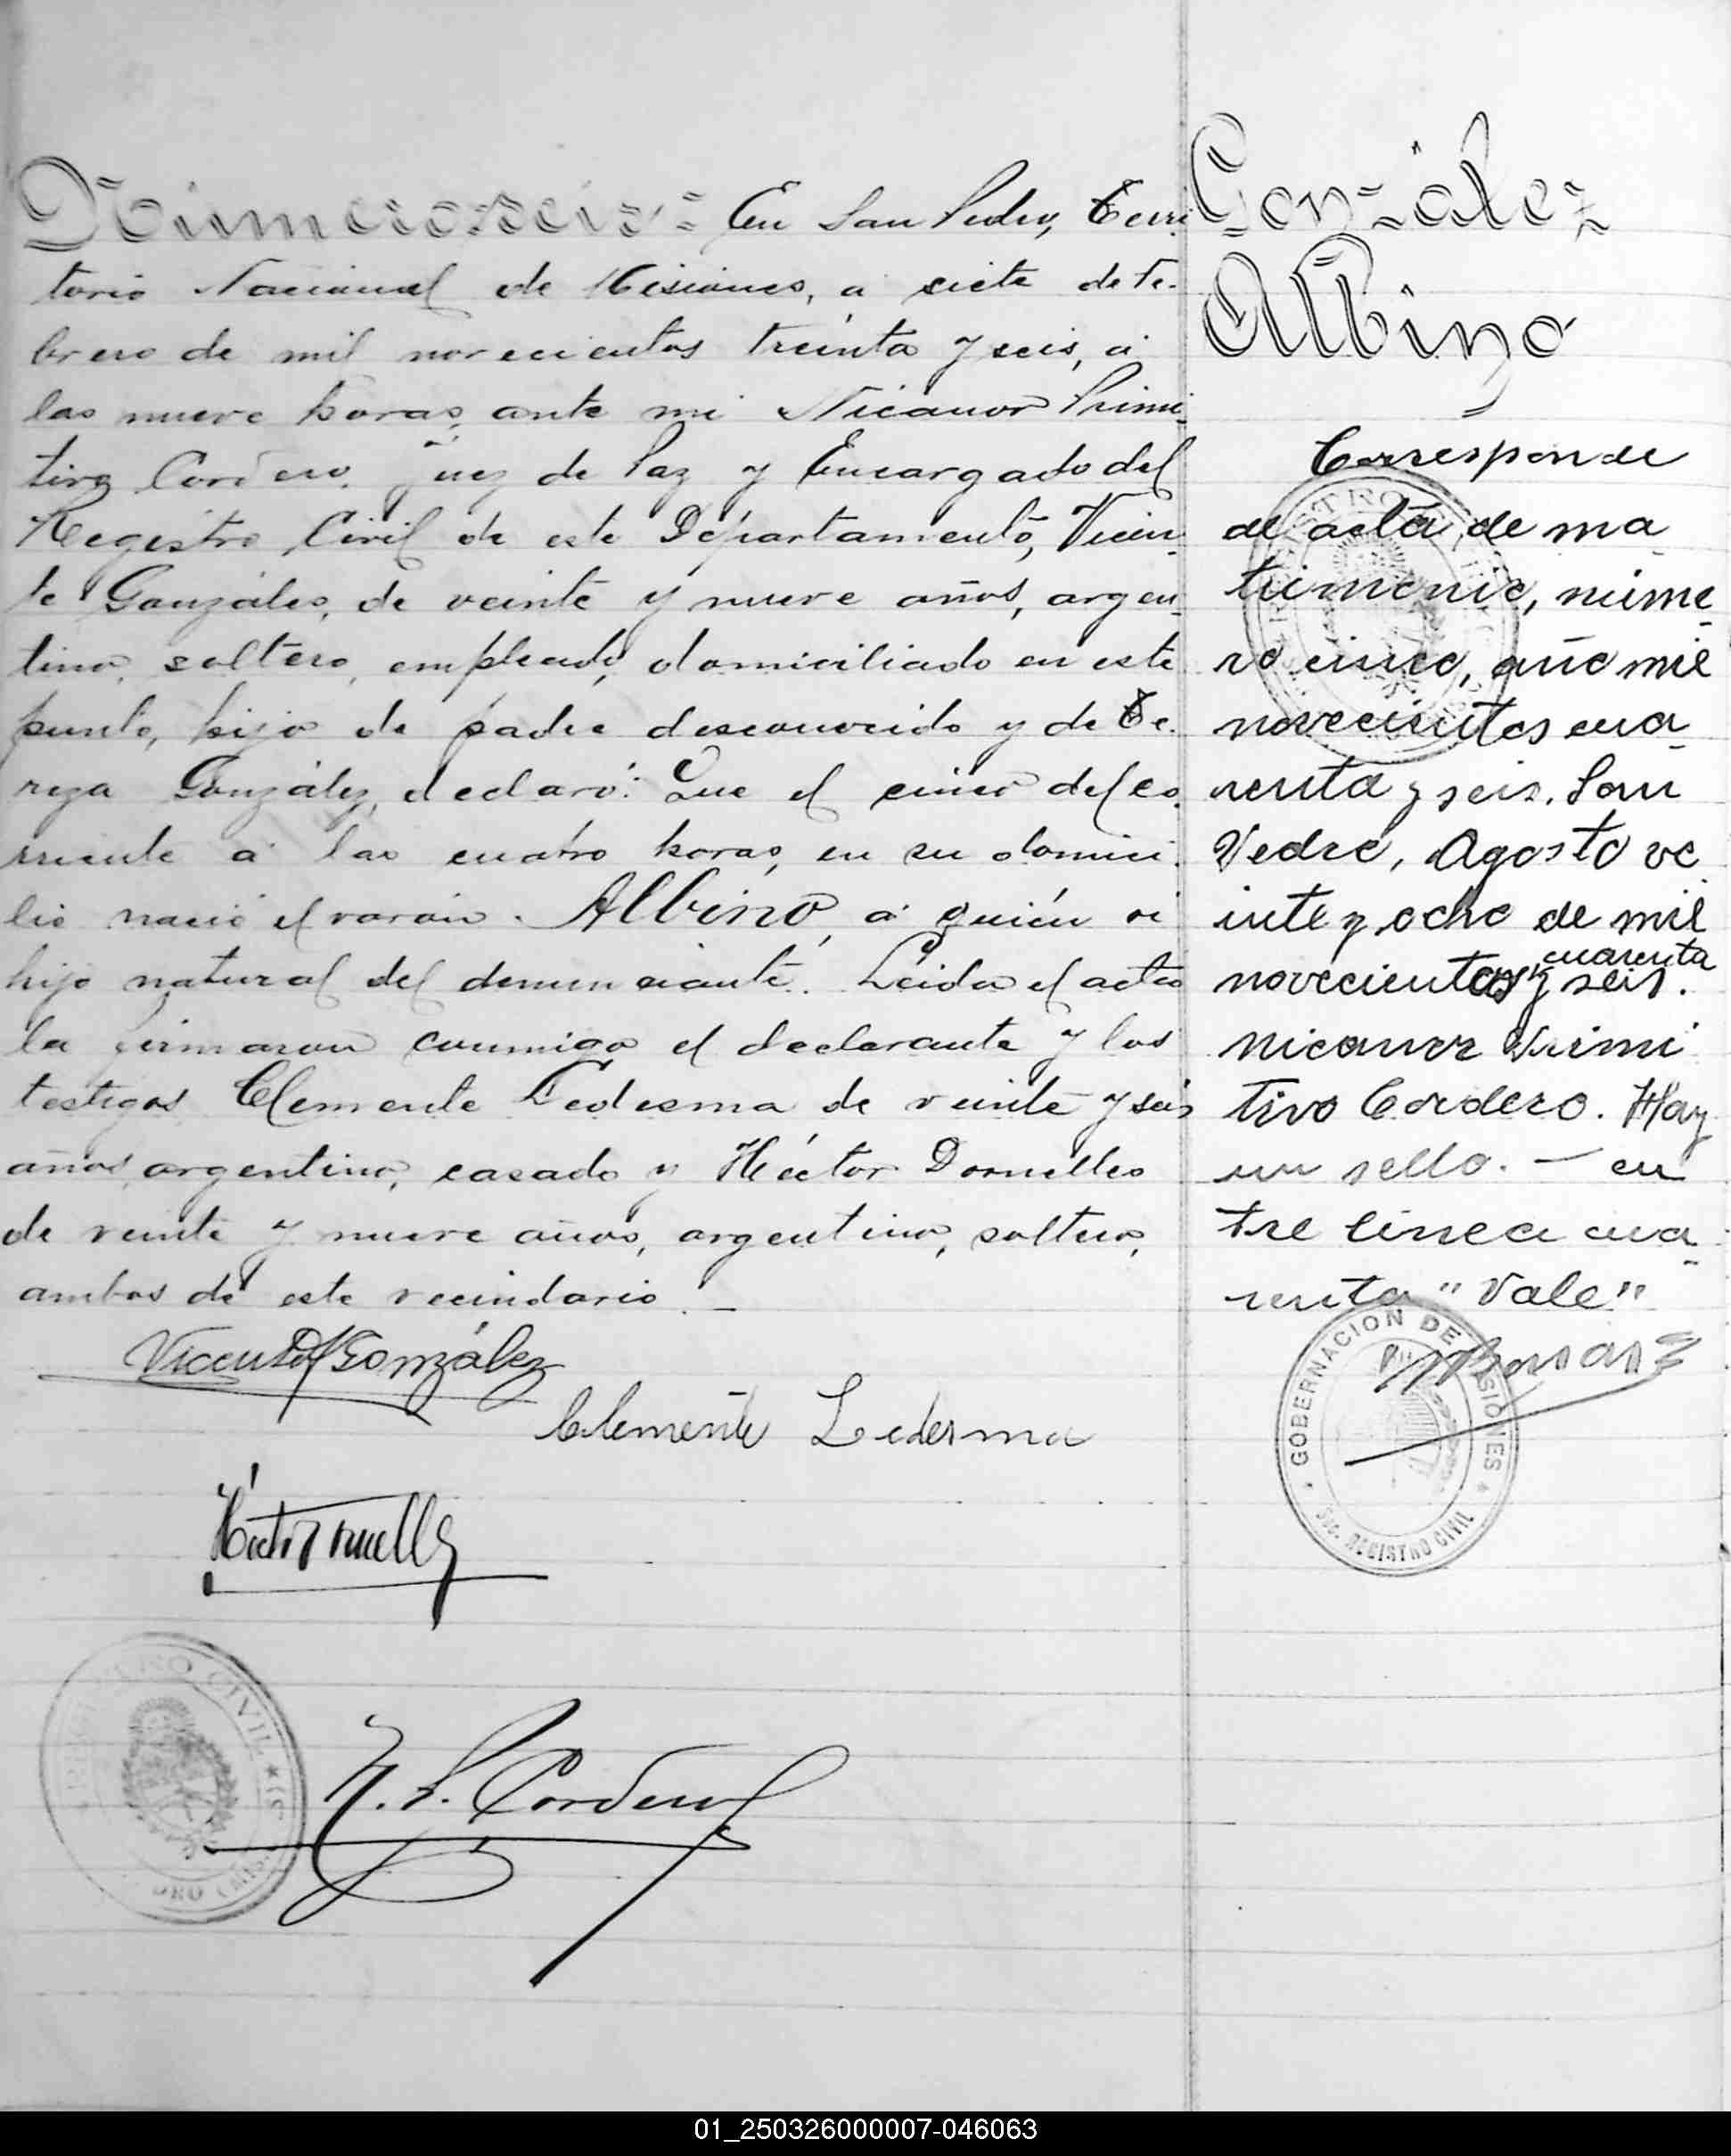 Número seis: En San Pedro, Terri
torio Nacional de Misiones, a siete de Fe-
brero de mil novecientos treinta y seis, a
las nueve horas, ante mi Nicanor Primi-
tivo Cordero, Juez de Paz y Encargado del
Registro Civil de este Departamento, Vicen-
te González, de veinte y nueve años, argen-
tino, soltero, empleado, domiciliado en este
punto, hijo de padre desconocido y de Te-
reza González, declaró: Que el cinco del co-
rriente a las cuatro horas, en su domici-
lio nació el varón Albino, a quién vi
hijo natural del denunciante. Leida el acta
la firmaron conmigo el declarante y los
testigos Clemente Ledesma de veinte y seis
años, argentino, casado y Héctor Dornelles
de veinte y nueve años, argentino, soltero,
ambos de este vecindario. —
Vicente González
Clemente Ledesma
Héctor
REGISTRO CIVIL
N. P. Cordero
González
Albino
Corresponde
al acta de ma
trimonio, núme
ro cinco, año mil
novecientos cua
renta y seis. San
Pedro, Agosto ve
inte y ocho de mil
cuarenta
novecientos y seis.
Nicanor Primi
tivo Cordero. Hay
un sello. — en
tre linea cua
renta "Vale"
GOBERNACION DE MISIONES
REGISTRO CIVIL
01_250326000007-046063